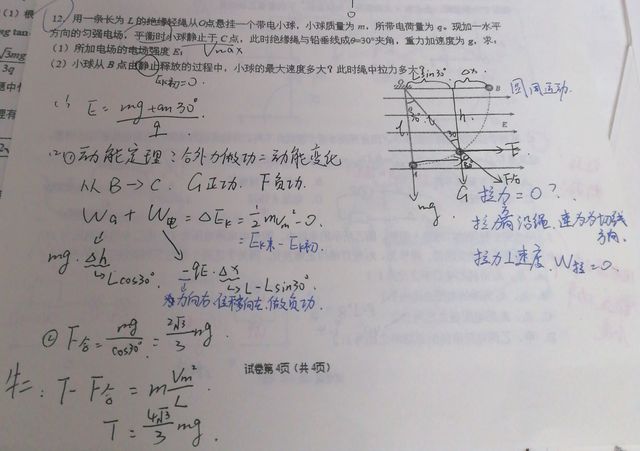 12. 用一条长为 L 的绝缘轻绳从O点悬挂一个带电小球，小球质量为 m，所带电荷量为 q。现加一水平
方向的匀强电场，平衡时小球静止于 C 点，此时绝缘绳与铅垂线成θ=30°夹角，重力加速度为 g，求：
(1) 所加电场的电场强度 E；
Vmax
(2) 小球从 B 点由静止释放的过程中，小球的最大速度多大？此时绳中拉力多大？
EK初=0.
(1) E = mg tan30° / q
(2) ① 动能定理：合外力做功=动能变化
从 B→C. G正功. F负功.
WG + W电 = ΔEK = 1/2 mVm² - 0.
= EK末 - EK初.
mg · Δh
Lcos30°
-qE · Δx
L - Lsin30°
力向右，位移向左，做负功.
② F合 = mg / cos30° = 2√3/3 mg.
牛二: T - F合 = m Vm²/L
T = 4√3/3 mg.
Lsin30°
Δx
圆周运动.
B
E
L
h
30
E
F合
mg
G
拉力=0?
拉力沿绳，速度为切线
方向.
拉力⊥速度，W拉=0.
试卷第4页（共4页）
(1) 根
mg tan
3q